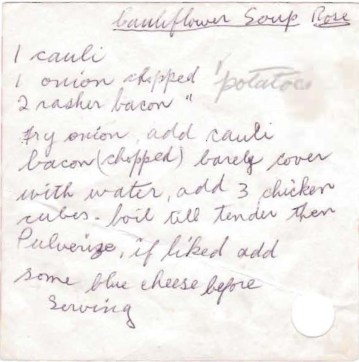 Cauliflower Soup Rose
1 cauli
1 onion chopped "potatoes
2 rasher bacon "
Fry onion, add cauli
bacon (chopped) barely cover
with water, add 3 chicken
cubes - boil till tender then
Pulverize, if liked add
some blue cheese before
serving